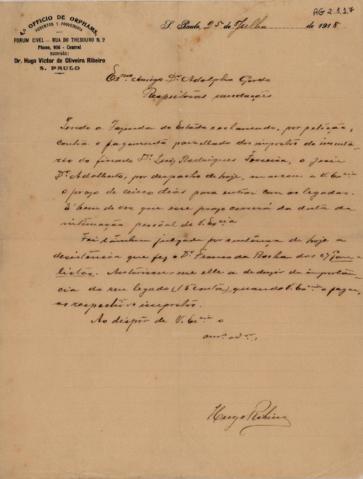 AG 2.3.27
4º OFFICIO DE ORPHAMS,
AUSENTES E PROVEDORIA
FORUM CIVEL - RUA DO THESOURO N. 2
Phone, - Central
ESCRIVÃO:
Dr. Hugo Victor de Oliveira Ribeiro
S. PAULO
S. Paulo, 25 de Julho de 1918
Ex.mo Amigo Dr. Adolpho Gordo
Respeitosas saudações
Tendo a Fazenda do Estado reclamando, por petição,
contra o pagamento parcellado dos impostos do inventa
rio do finado Dr. Luiz Rodrigues Ferreira, o Juiz
Dr. Adalberto, por despacho de hoje, marcou a V. Ex.cia
o prazo de cinco dias para entrar com os legados.
É bem de ver que esse prazo correrá da data da
intimação pessoal de V. Ex.cia
Foi tambem julgada por sentença de hoje a
desistencia que fez o Dr. Franco da Rocha dos
Autorisou-me elle a deduzir da importan
cia do seu legado quando V. Ex.cia o pagar,
os respectivos impostos.
Ao dispôr de V. Ex.cia o
Hugo Ribeiro